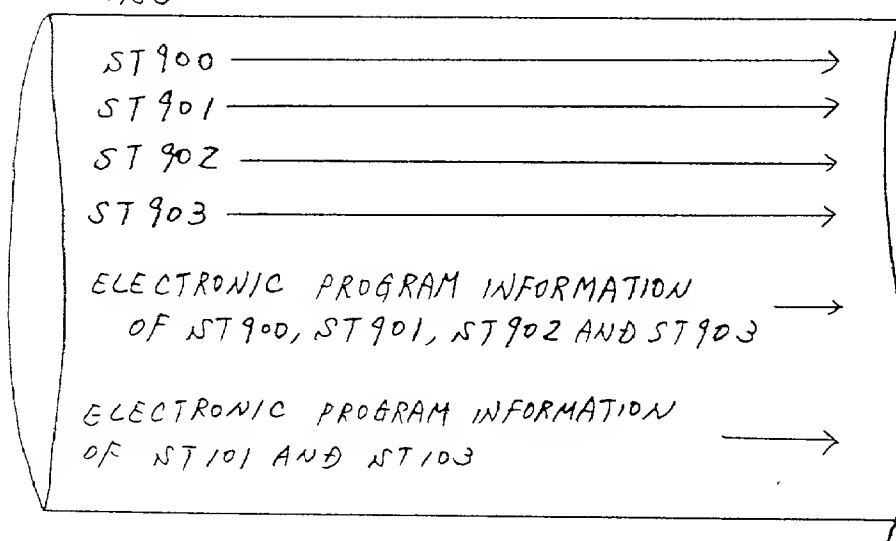 ST900
ST901
ST902
ST903
ELECTRONIC PROGRAM INFORMATION
OF ST900, ST901, ST902 AND ST903
ELECTRONIC PROGRAM INFORMATION
OF ST101 AND ST103